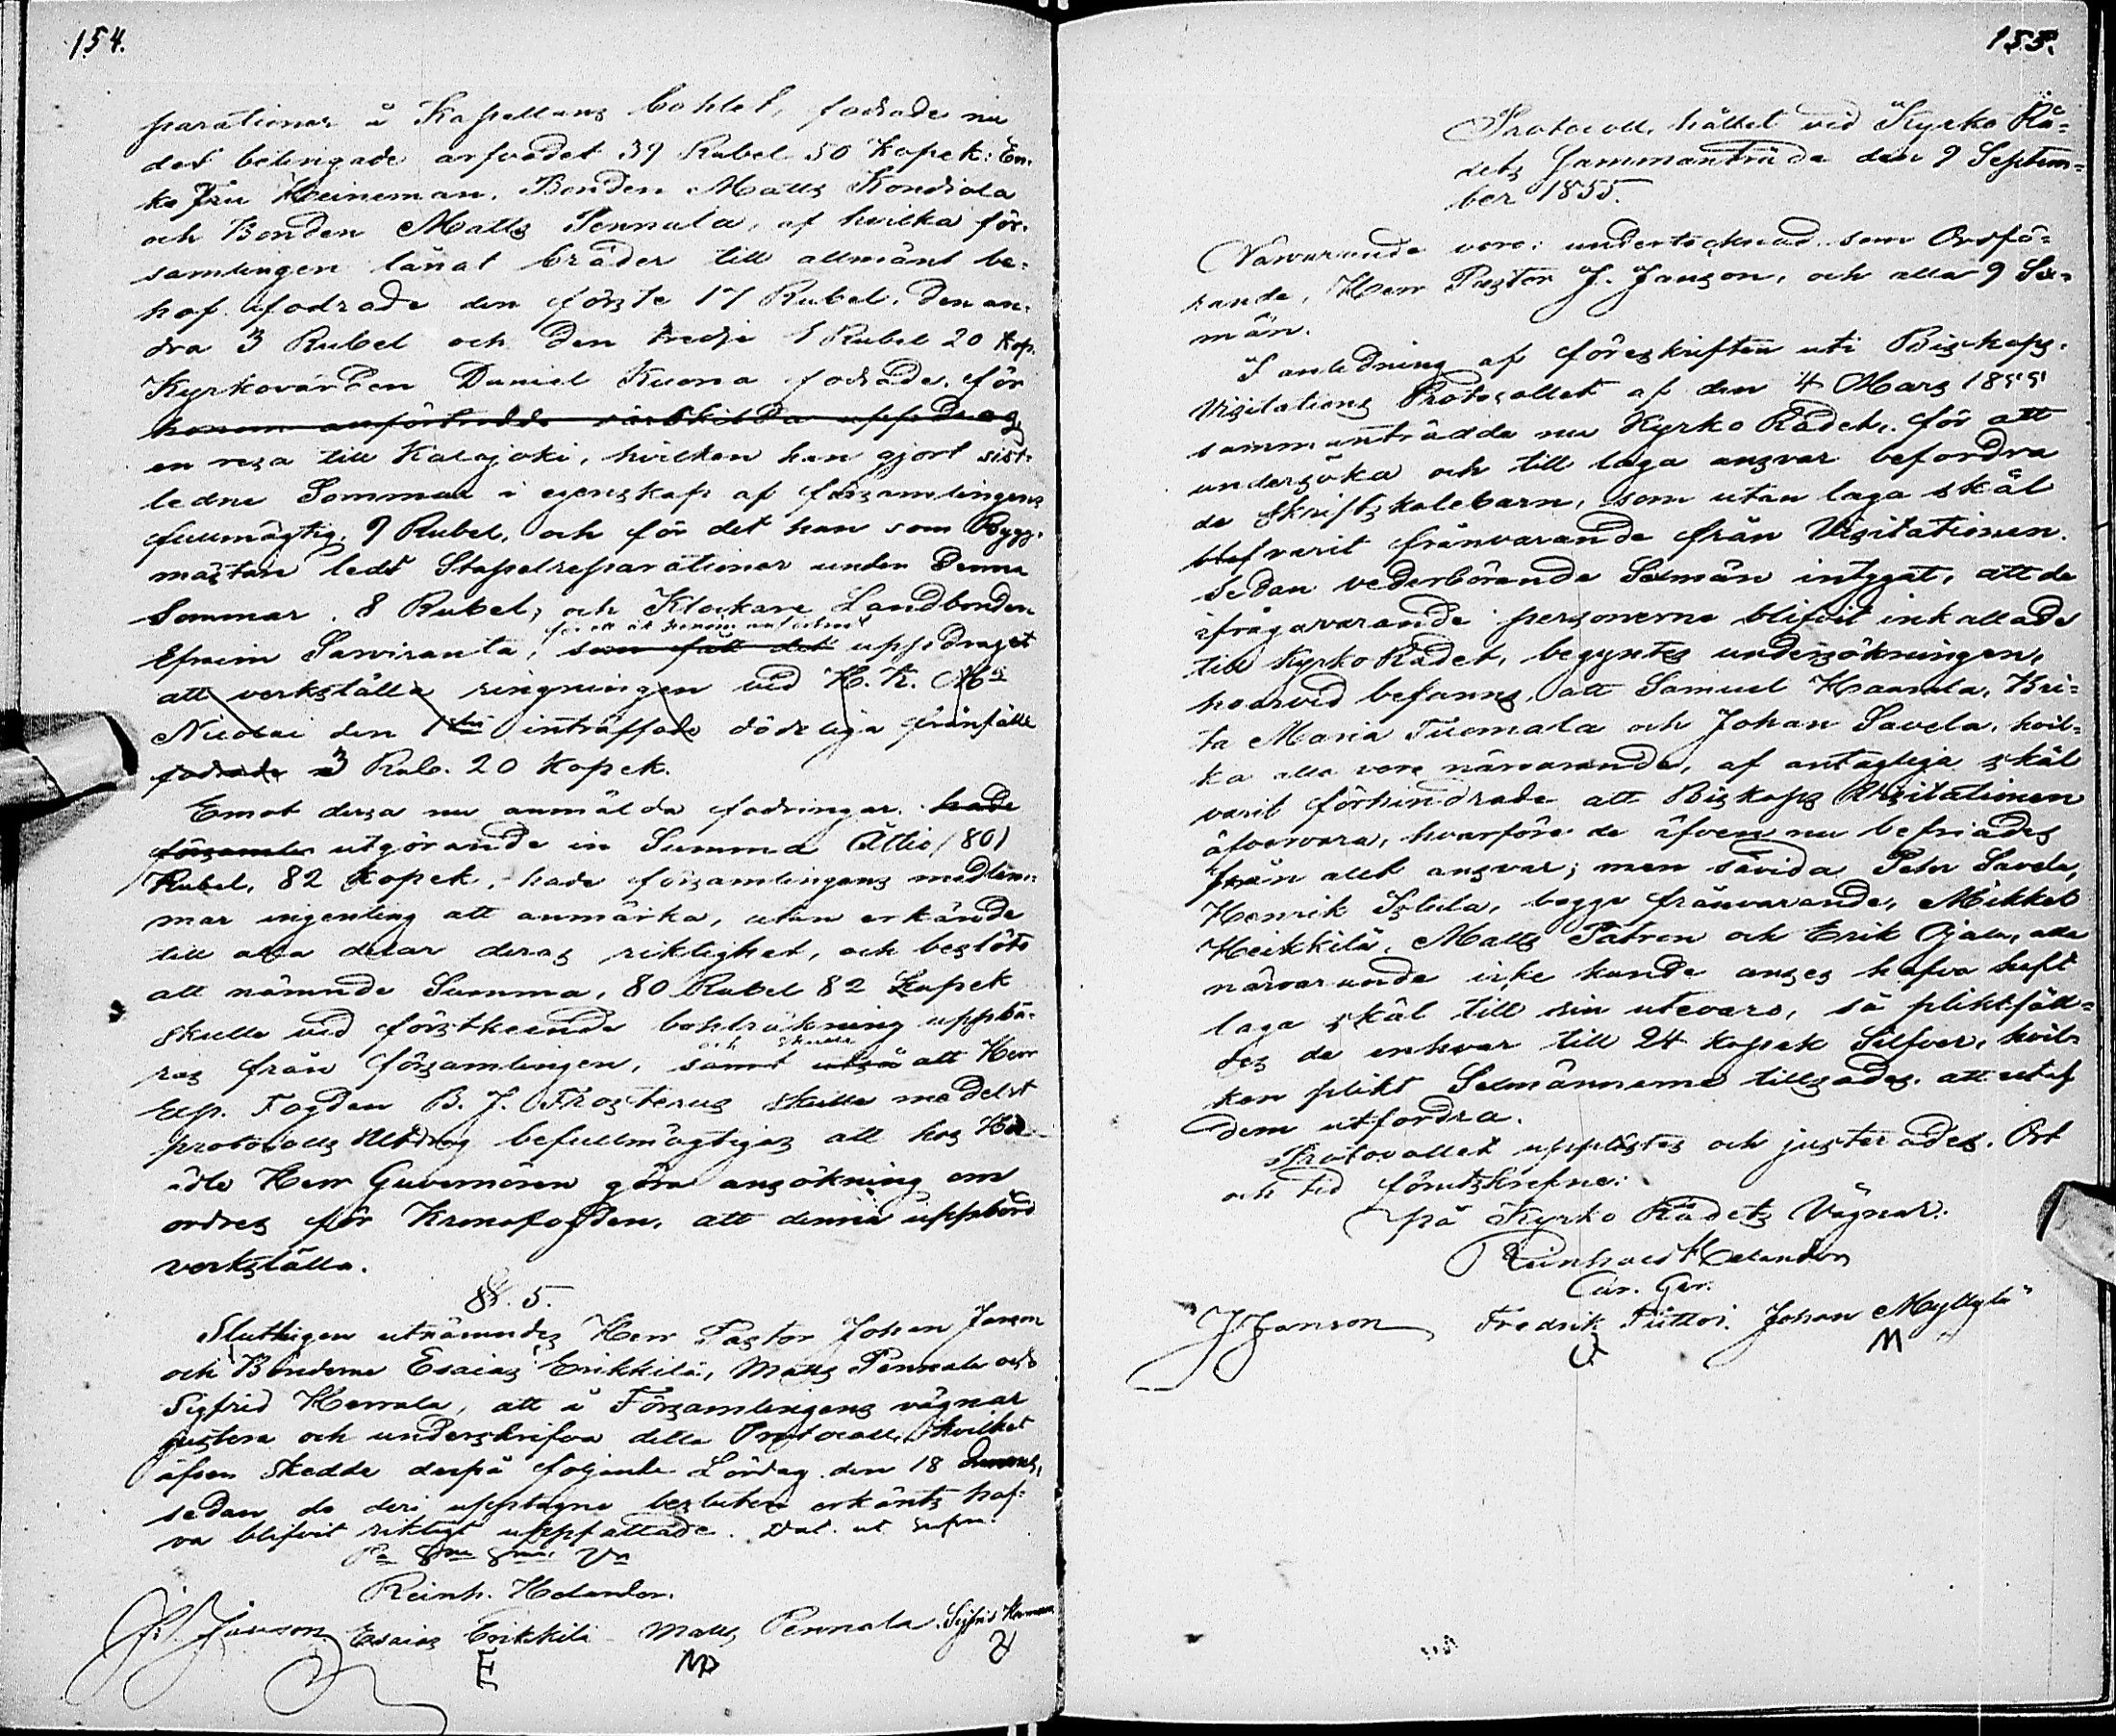 154.
parationer å Kapellans bohlet, fodrade nu
det betingade arfvodet 39 Rubel 50 Kopek: En-
ke Fru Heineman, Bonden Matts Kondiola
och Bonden Matts Pennala, af hvilka för-
samlingen lånat bräder till allmänt be-
hof fodrade den förste 17 Rubel, den an-
dra 3 Rubel och den tredje 1 Rubel 20 Kop.
Kyrkovärden Daniel Kuona fodrade, för
honom anförtrodde särskilda uppdrag
en resa till Kalajoki, hvilken han gjort sist-
ledne Sommar i egenskap af församlingens
fullmägtig, 9 Rubel, och för det han som Bygg-
mästare ledt Stapelreparationer under denna
Sommar, 8 Rubel, och Klockare Landbonden
för ett åt honom
Efraim Sarviranta, som fått det uppdraget
att verkställa ringningen vid H. K. M:s
Nicolai den 1:stes inträffade dödeliga frånfälle
fodrade 3 Rub. 20 Kopek.
Emot dessa nu anmälda fodringar, hade
församl utgörande in Summa Åttio (80)
Rubel, 82 Kopek, hade församlingens medlem-
mar ingenting att anmärka, utan erkände
till alla delar deras riktighet, och beslöts
att nämnde Summa, 80 Rubel 82 Kopek
skulle vid förstkommande bohlräkning uppbä-
och skulle
ras från församlingen, samt att Herr
Exp. Fogden B. J. Frosterus skulle medelst
protocolls utdrag befullmägtigas att hos
ädle Herr Guvernören göra ansökning om
ordres för Kronofogden, att denna uppbörd
verkställa.
§. 5.
Slutligen utnämndes Herr Pastor Johan Janson
och Bönderne Esaias Erikkilä, Matts Pennala och
Sigfrid Herrala, att å Församlingens vägnar
justera och underskrifva detta Protocoll, hvilket
äfven skedde derpå följande Lördag den 18
sedan de deri upptagne besluten erkänts haf-
va blifvit riktigt uppfattade. Dat. ut supra.
Reinh. Helander.
J. Janson Esaias Erikkilä Matts Pennala Sigfrid Herrala
E MP
155.
Protocoll, hållet vid Kyrko Rå-
dets sammanträde den 9 Septem-
ber 1855.
Närvarande voro: undertecknad som Ordfö-
rande, Herr Pastor J. Janson, och alla 9 Sex-
män.
I anledning af föreskriften uti Biskops-
Visitations Protocollet af den 4 Mars 1855
sammanträdde nu Kyrko Rådet, för att
undersöka och till laga ansvar befordra
de Skriftskolebarn, som utan laga skäl
blef varit frånvarande från Visitationen.
Sedan vederbörande Sexmän intygat, att de
ifrågavarande personerne blifvit inkallade
till Kyrko Rådet, begyntes undersökningen,
hvarvid befanns, att Samuel Haarala, Bri-
ta Maria Tuomala och Johan Savela, hvil-
ka alla voro närvarande, af antagliga skäl
varit förhindrade att Biskops Visitationen
öfvervara, hvarföre de äfven nu befriades
från allt ansvar; men såvida Petr Savela,
Henrik Isotalo, begge frånvarande, Mikkel
Heikkilä, Matts Patron och Erik Ojala, alla
närvarande icke kunde anses hafva haft
laga skäl till sin utevaro, så pliktfäll-
des de enhvar till 24 kopek Silfver, hvil-
ken plikt Sexmännerne tillsades att utaf
dem utfordra.
Protocollet upplästes och justerades. Ort
och tid förutskrefne:
på Kyrko Rådets Vägnar:
Reinhold Helander
Cur. Ger.
J. Janson Fredrik Tiittoi Johan Myllylä
M